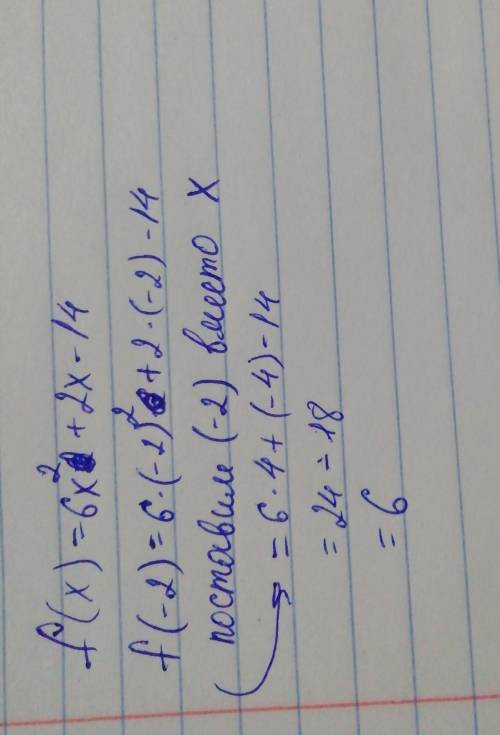 f(x)=6x²+2x-14
f(-2)=6·(-2)²+2·(-2)-14
поставили (-2) вместо X
=6·4+(-4)-14
=24-18
=6